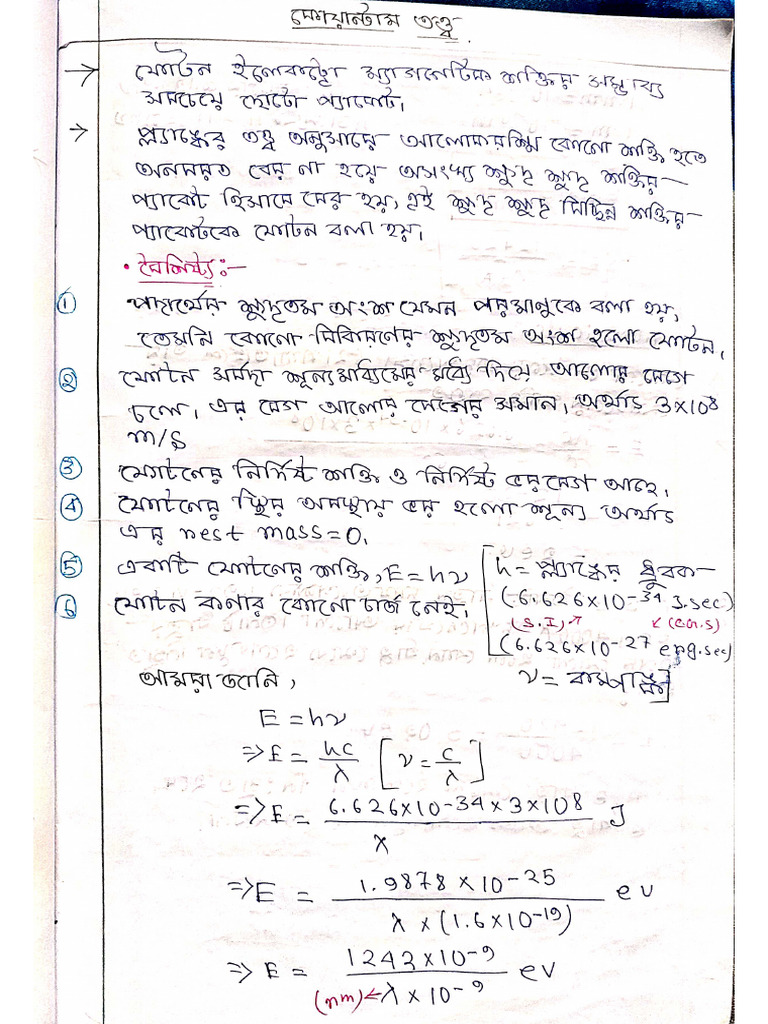 কোয়ান্টাম তত্ত্ব
→ ফোটন ইলেকট্রো ম্যাগনেটিক শক্তির সম্ভাব্য
সবচেয়ে ছোটো প্যাকেট।
→ প্ল্যাঙ্কের তত্ত্ব অনুসারে আলোকরশ্মি কোনো শক্তি হতে
অনবরত বের না হয়ে অসংখ্য ক্ষুদ্র ক্ষুদ্র শক্তির
প্যাকেট হিসাবে বের হয়, এই ক্ষুদ্র ক্ষুদ্র বিচ্ছিন্ন শক্তির
প্যাকেটকে ফোটন বলা হয়।
• বৈশিষ্ট্য:-
① পদার্থের ক্ষুদ্রতম অংশ যেমন পরমানুকে বলা হয়,
তেমনি কোনো বিকিরণের ক্ষুদ্রতম অংশ হলো ফোটন।
② ফোটন সর্বদা শূন্যমাধ্যমের মধ্যে দিয়ে আলোর বেগে
চলে। এর বেগ আলোর বেগের সমান, অর্থাৎ 3×10⁸
m/s
③ ফোটনের নির্দিষ্ট শক্তি ও নির্দিষ্ট ভরবেগ আছে।
④ ফোটনের স্থির অবস্থায় ভর হলো শূন্য অর্থাৎ
এর rest mass = 0.
⑤ একটি ফোটনের শক্তি, E = hν [h = প্ল্যাঙ্কের ধ্রুবক
(6.626×10⁻³⁴ J.sec)
⑥ ফোটন কনার কোনো চার্জ নেই।
(S.I) ↗ ↙ (C.G.S)
(6.626×10⁻²⁷ erg.sec)
আমরা জানি, ν = কম্পাঙ্ক]
E = hν
⇒ E = hc/λ [ν = c/λ]
⇒ E = 6.626×10⁻³⁴×3×10⁸/λ J
⇒ E = 1.9878×10⁻²⁵/λ×(1.6×10⁻¹⁹) ev
⇒ E = 1242×10⁻⁹/λ×10⁻⁹ ev
(nm) ←